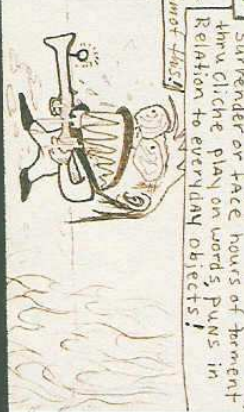 surrender or face hours of torment
thru cliche play on words, puns in
Relation to everyday objects!
not this!